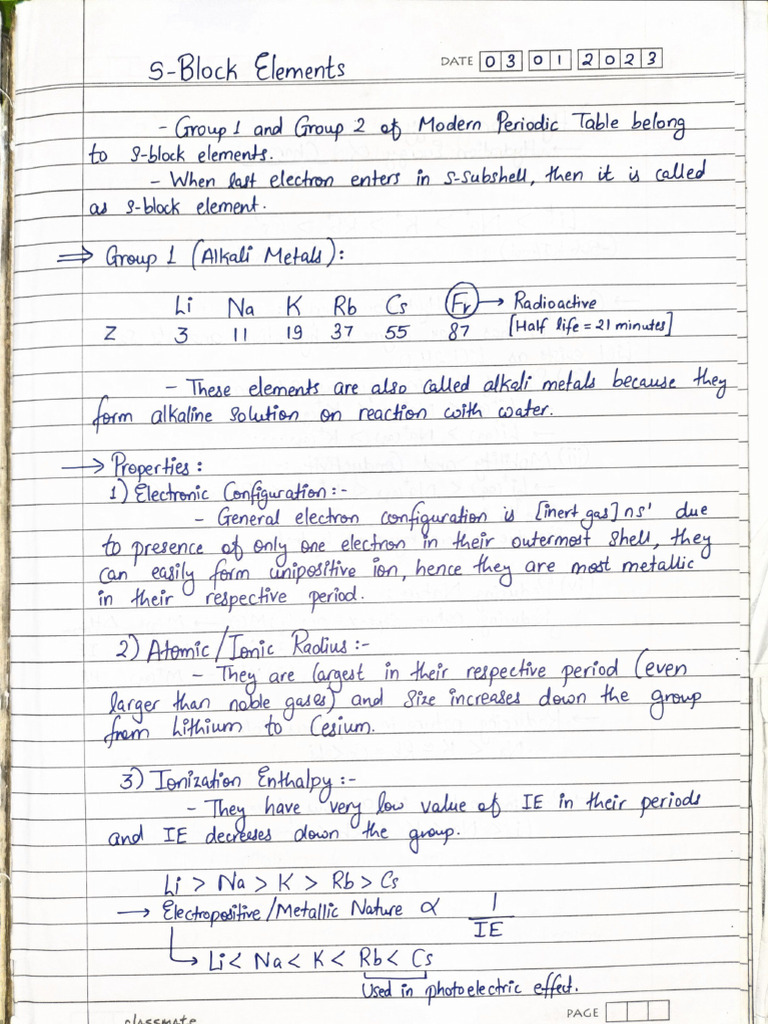 S-Block Elements DATE 03 01 2023
- Group 1 and Group 2 of Modern Periodic Table belong
to S-block elements.
- When last electron enters in s-subshell, then it is called
as S-block element.
⇒ Group 1 (Alkali Metals):
Li Na K Rb Cs Fr → Radioactive
Z 3 11 19 37 55 87 [Half life = 21 minutes]
- These elements are also called alkali metals because they
form alkaline solution on reaction with water.
→ Properties:
1) Electronic Configuration:-
- General electron configuration is [inert gas] ns¹ due
to presence of only one electron in their outermost shell, they
can easily form unipositive ion, hence they are most metallic
in their respective period.
2) Atomic/Ionic Radius:-
- They are largest in their respective period (even
larger than noble gases) and size increases down the group
from Lithium to Cesium.
3) Ionization Enthalpy:-
- They have very low value of IE in their periods
and IE decreases down the group.
Li > Na > K > Rb > Cs
→ Electropositive/Metallic Nature ∝ 1/IE
↳ Li < Na < K < Rb < Cs
Used in photoelectric effect.
classmate PAGE